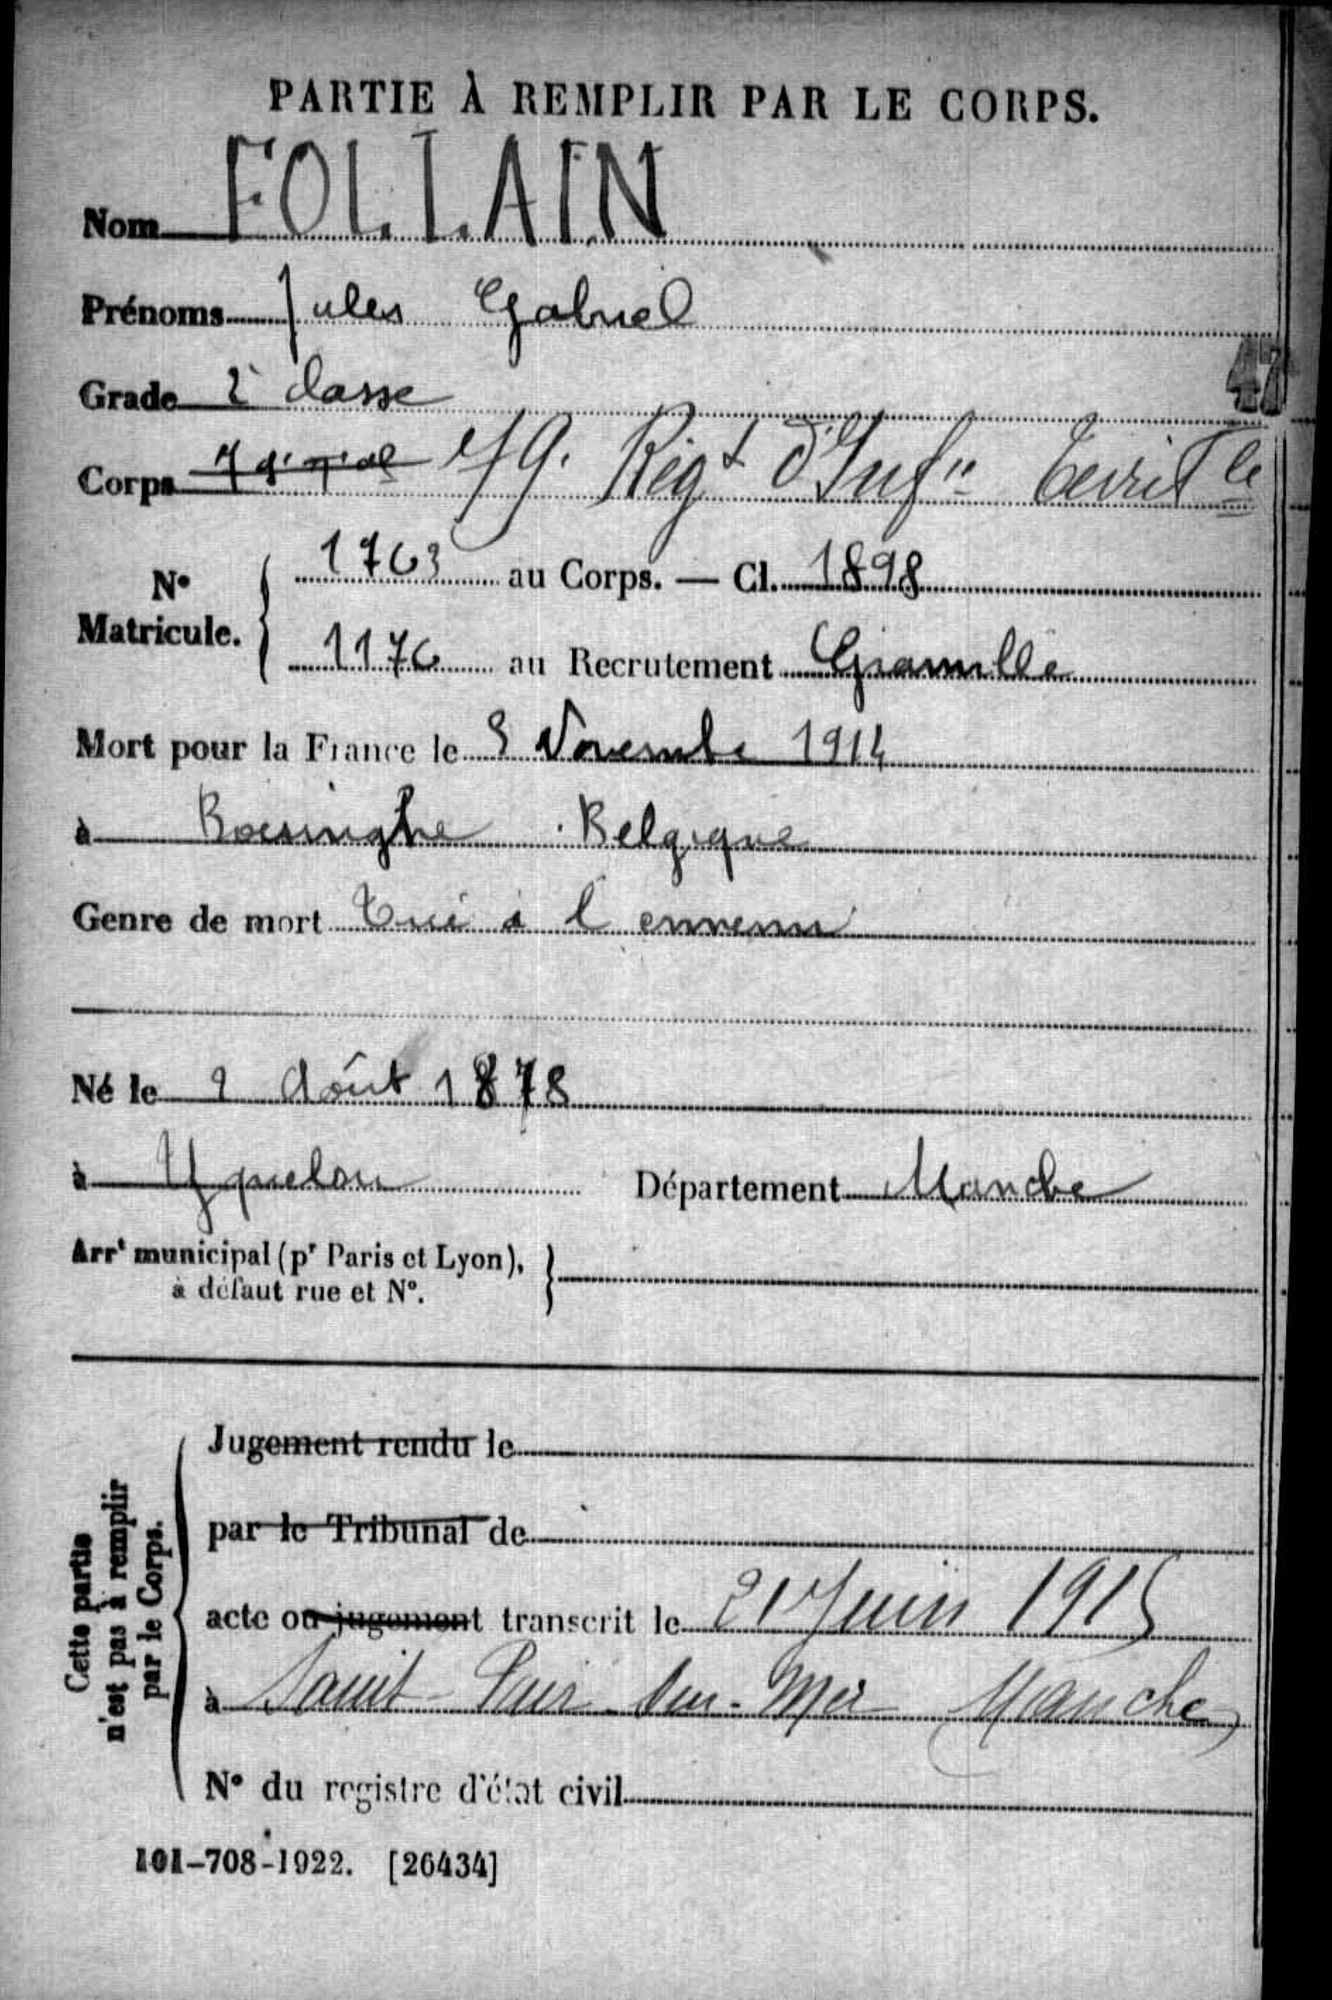 PARTIE À REMPLIR PAR LE CORPS.
Nom FOLLAIN
Prénoms Jules Gabriel
Grade 2e classe
47
Corps 79. Régt d'Infie Territle
N° Matricule. 1763 au Corps. — Cl. 1898
1176 au Recrutement Granville
Mort pour la France le 3 Novembre 1914
à Boesinghe Belgique
Genre de mort Tué à l ennemi
Né le 2 Août 1878
à Yquelon Département Manche
Arrt municipal (pr Paris et Lyon),
à défaut rue et N°.
Cette partie
n'est pas à remplir
par le Corps.
Jugement rendu le
par le Tribunal de
acte ou jugement transcrit le 21 Juin 1915
à Saint Pair sur-Mer Manche
N° du registre d'état civil
101-708-1922. [26434]